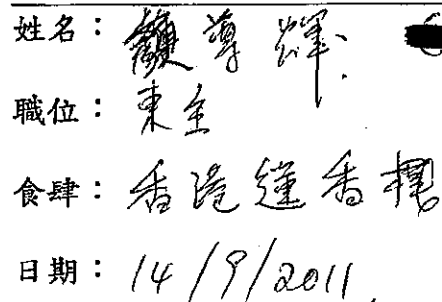 姓名：顏尊輝
職位：東主
食肆：香港蓮香樓
日期：14/9/2011